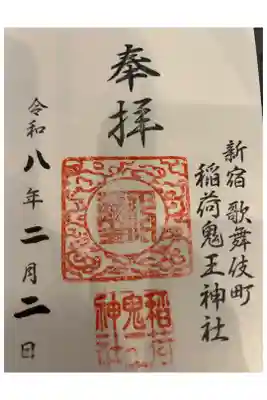 新宿歌舞伎町
稲荷鬼王神社
奉拝
令和八年二月二日
稲荷
鬼王
神社